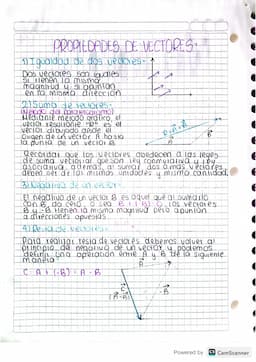 PROPIEDADES DE VECTORES.
1) Igualdad de dos vectores.
Dos vectores son iguales
si tienen la misma
magnitud y si apuntan
en la misma dirección.
2) Suma de vectores.
(Método del paralelogramo)
Mediante método gráfico el
vector resultante "R" es el
vector dibujado desde el
origen de un vector A hasta
la punta de un vector B
Recordar que los vectores obedecen a las leyes
de suma vectorial que son ley conmutativa y ley
asociativa, además, al sumar dos o más vectores
deben ser de las mismas unidades y misma cantidad.
3) Negativo de un vector.
El negativo de un vector B es aquel que al sumarlo
con B, da cero, o sea B + (-B) = 0, los vectores
B y -B tienen la misma magnitud pero apuntan
a direcciones opuestas.
4) Resta de vectores.
Para realizar resta de vectores debemos volver al
principio de negativo de un vector y podemos
definir una operación entre A y B de la siguiente
manera:
C = A + (-B) = A - B
Powered by CS CamScanner